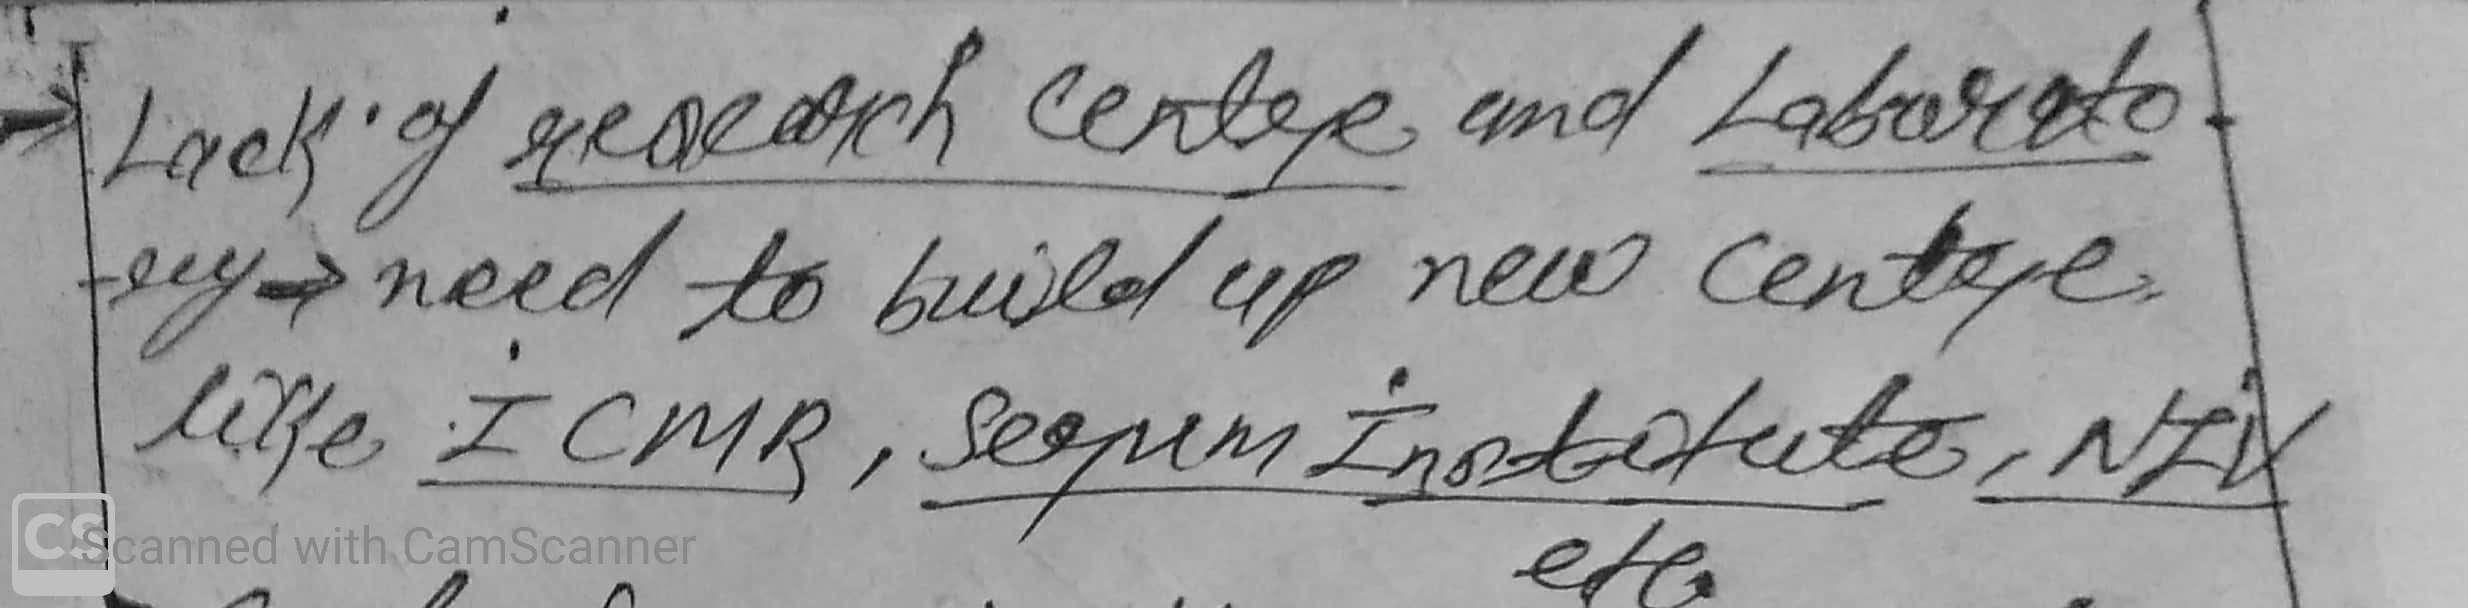 → Lack of research centre and Laborato-
-ry → need to build up new centre
like ICMR, Serum Institute, NIV
etc.
CS Scanned with CamScanner